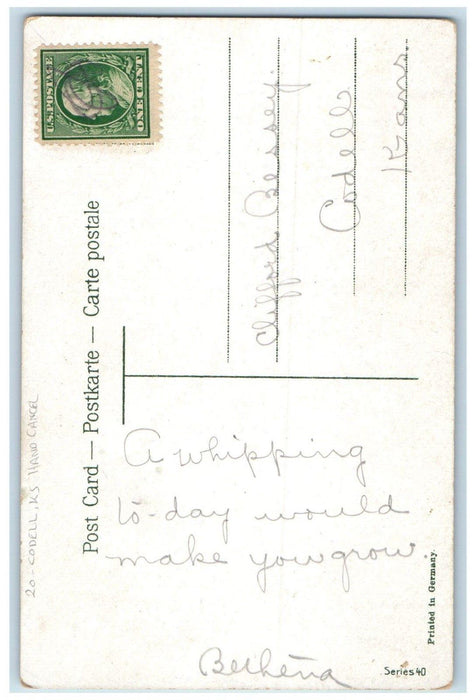 U.S.POSTAGE
ONE CENT
Post Card — Postkarte — Carte postale
Clifford Bessey.
Codell
Kans.
A whipping
to-day would
make you grow.
Bethena
20 - CODELL, KS HAND CANCEL
Printed in Germany.
Series 40